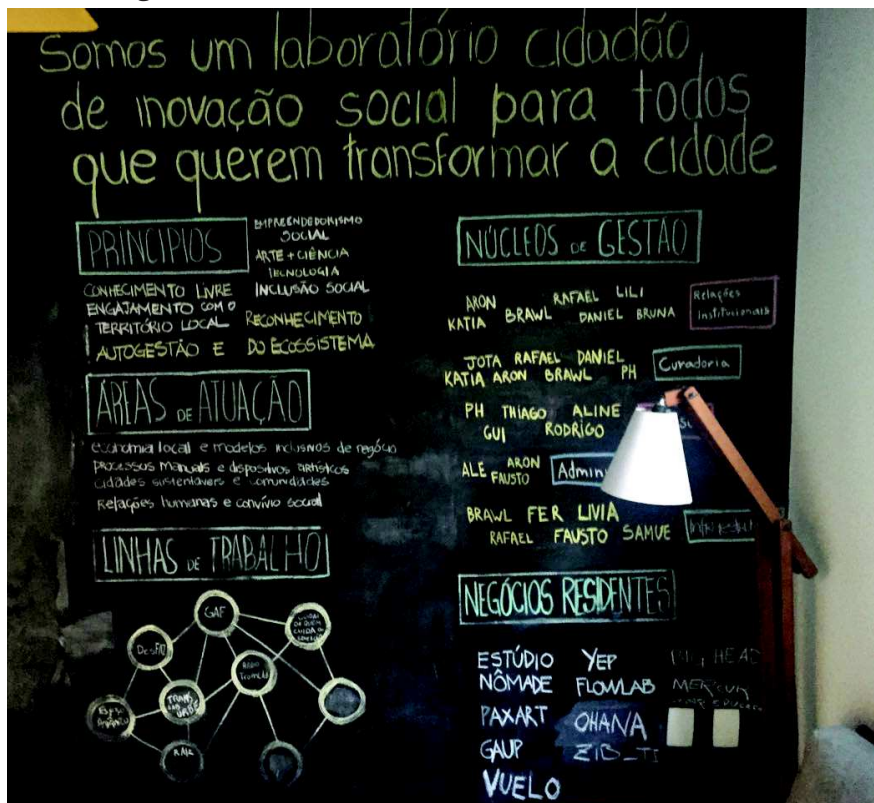 Somos um laboratório cidadão
de inovação social para todos
que querem transformar a cidade
PRINCÍPIOS
EMPREENDEDORISMO
SOCIAL
ARTE + CIÊNCIA
TECNOLOGIA
INCLUSÃO SOCIAL
CONHECIMENTO LIVRE
ENGAJAMENTO COM O
TERRITÓRIO LOCAL
RECONHECIMENTO
AUTOGESTÃO E DO ECOSSISTEMA
ÁREAS DE ATUAÇÃO
economia local e modelos inclusivos de negócio
processos manuais e dispositivos artísticos
cidades sustentáveis e comunidades
Relações humanas e convívio social
LINHAS DE TRABALHO
GAF
DesFAZ
RAIZ
NÚCLEOS DE GESTÃO
ARON RAFAEL LILI
KATIA BRAWL DANIEL BRUNA
Relações
Institucionais
JOTA RAFAEL DANIEL
KATIA ARON BRAWL PH
Curadoria
PH THIAGO ALINE
GUI RODRIGO
ALE ARON
FAUSTO
BRAWL FER LIVIA
RAFAEL FAUSTO SAMUE
NEGÓCIOS RESIDENTES
ESTÚDIO
NÔMADE
PAXART
GAUP
VUELO
YEP
FLOWLAB
OHANA
ZIB_TI
HEAD